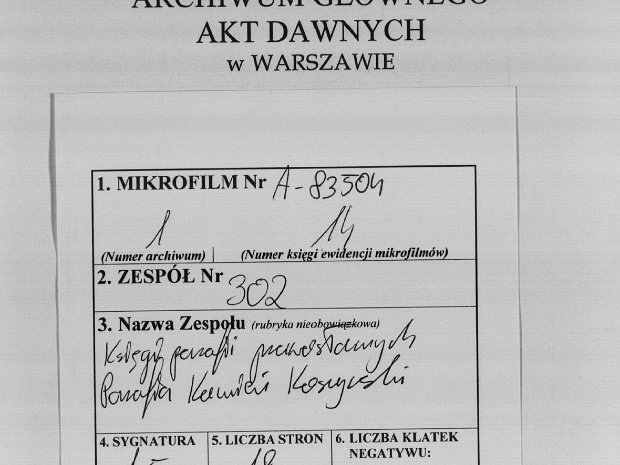 ARCHIWUM GŁÓWNEGO
AKT DAWNYCH
w WARSZAWIE
1. MIKROFILM Nr A-83504
1 14
(Numer archiwum) (Numer księgi ewidencji mikrofilmów)
2. ZESPÓŁ Nr 302
3. Nazwa Zespołu (rubryka nieobowiązkowa)
Księgi parafii prawosławnych
Parafia Kamień Koszyrski
4. SYGNATURA 5. LICZBA STRON 6. LICZBA KLATEK
NEGATYWU: